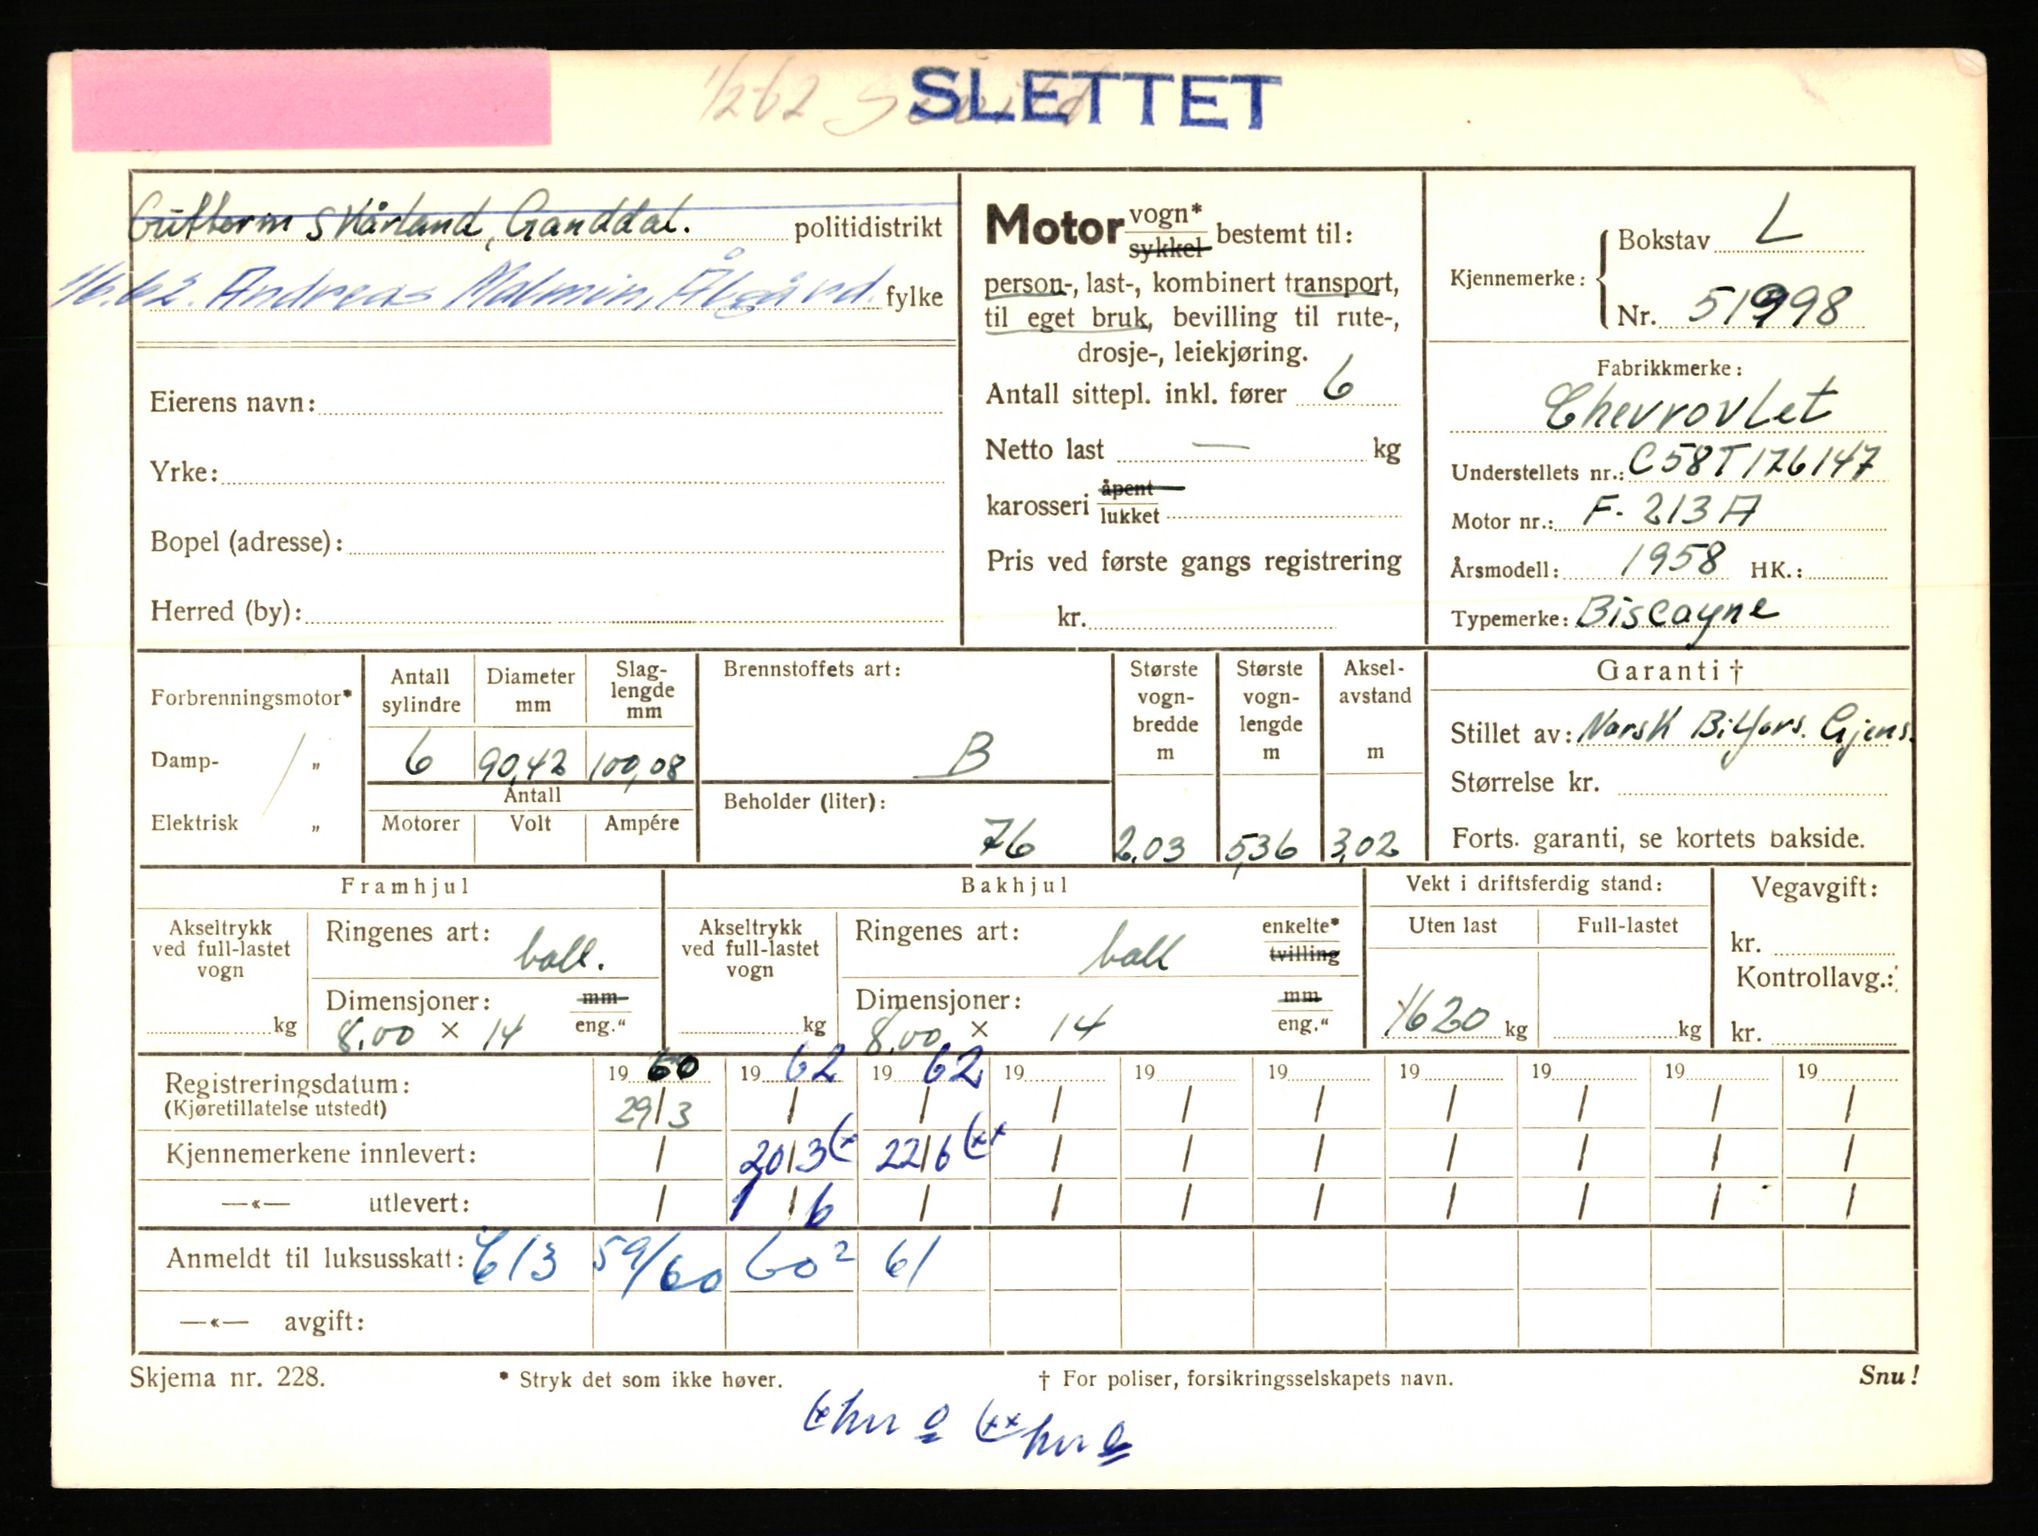 1/2 62
SLETTET
Guttorm Skårland, Ganddal. politidistrikt
1/6.62. Andreas Malmin, Ålgård. fylke
Eierens navn:
Yrke:
Bopel (adresse):
Herred (by):
Motor vogn* sykkel bestemt til:
person-, last-, kombinert transport,
til eget bruk, bevilling til rute-,
drosje-, leiekjøring.
Antall sittepl. inkl. fører 6
Netto last — kg
karosseri åpent lukket
Pris ved første gangs registrering
kr.
Kjennemerke: Bokstav L
Nr. 51998
Fabrikkmerke:
Chevrovlet
Understellets nr.: C58T176147
Motor nr.: F-213A
Årsmodell: 1958 HK.:
Typemerke: Biscayne
Forbrenningsmotor*
Damp- "
Elektrisk "
Antall sylindre
Diameter mm
Slag-lengde mm
6 90,42 100,08
Antall
Motorer Volt Ampére
Brennstoffets art:
B
Beholder (liter):
76
Største vogn-bredde m
2.03
Største vogn-lengde m
5,36
Aksel-avstand m
3,02
Garanti †
Stillet av: Norsk Bilfors. Gjens.
Størrelse kr.
Forts. garanti, se kortets bakside.
Framhjul
Akseltrykk ved full-lastet vogn
kg
Ringenes art: ball.
Dimensjoner: mm
8.00 × 14 eng."
Bakhjul
Akseltrykk ved full-lastet vogn
kg
Ringenes art: ball enkelte* tvilling
Dimensjoner: mm
8.00 × 14 eng."
Vekt i driftsferdig stand:
Uten last Full-lastet
1620 kg kg
Vegavgift:
kr.
Kontrollavg.:
kr.
Registreringsdatum: 19 60 19 62 19 62 19 19 19 19 19 19 19
(Kjøretillatelse utstedt) 29/3 / / / / / / / / /
Kjennemerkene innlevert: / 20/3 (* 22/6 (** / / / / / / /
—«— utlevert: / 1/6 / / / / / / / /
Anmeldt til luksusskatt: 6/3 59/60 60² 61
—«— avgift:
Skjema nr. 228. * Stryk det som ikke høver. † For poliser, forsikringsselskapets navn. Snu!